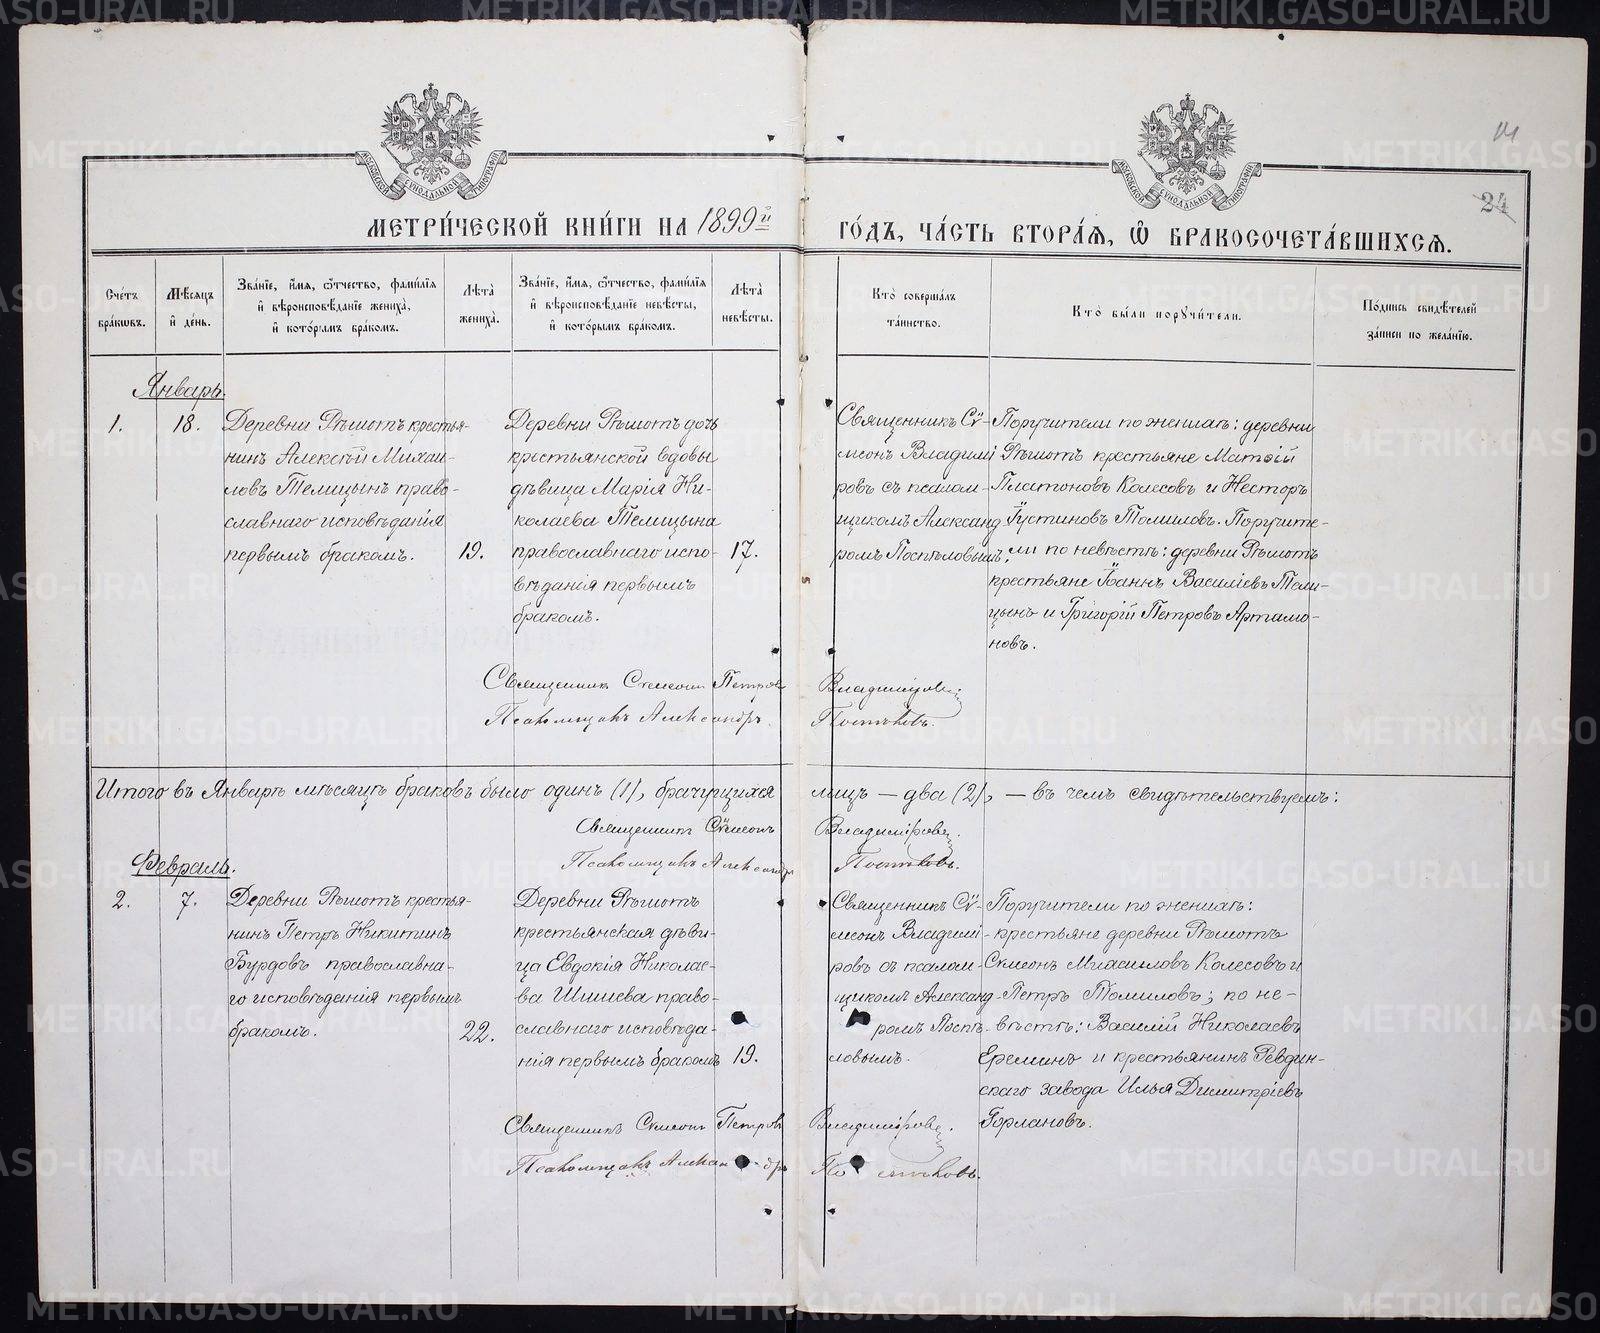 14
24
МОСКОВСКОЙ СѴНОДАЛЬНОЙ ТИПОГРАФІИ
МОСКОВСКОЙ СѴНОДАЛЬНОЙ ТИПОГРАФІИ
МЕТРИ́ЧЕСКОЙ КНИ́ГИ НА 1899й ГО́ДЪ, ЧА́СТЬ ВТОРА́Я, Ѽ БРАКОСОЧЕТА́ВШИХСЯ.
Сче́тъ бра́кѡвъ.
Мѣ́сяцъ и҆ де́нь.
Зва́нїе, и҆́мя, ѻ҆́тчество, фами́лїя и҆ вѣроисповѣ́данїе жениха̀, и҆ кото́рымъ бра́комъ.
Лѣ́та жениха̀.
Зва́нїе, и҆́мя, ѻ҆́тчество, фами́лїя и҆ вѣроисповѣ́данїе невѣ́сты, и҆ кото́рымъ бра́комъ.
Лѣ́та невѣ́сты.
Кто̀ соверша́лъ та́инство.
Кто̀ бы́ли порꙋчи́тели.
По́дпись свидѣ́телей за́писи по жела́нїю.
Январь.
1.
18.
Деревни Рѣшотъ крестья-
нинъ Алексѣй Михаи-
ловъ Телицынъ право-
славнаго исповѣданія
первымъ бракомъ.
19.
Деревни Рѣшотъ дочь
крестьянской вдовы
дѣвица Марія Ни-
колаева Телицына
православнаго испо-
вѣданія первымъ
бракомъ.
17.
Священникъ Сѵ-
меонъ Владимі
ровъ съ псалом-
щикомъ Александ
ромъ Поспѣловымъ.
Поручители по женихѣ: деревни
Рѣшотъ крестьяне Матѳій
Платоновъ Колесовъ и Несторъ
Іустиновъ Томиловъ. Поручите-
ли по невѣстѣ: деревни Рѣшотъ
крестьяне Іоаннъ Василіевъ Тели-
цынъ и Григорій Петровъ Артамо-
новъ.
Священникъ Симеонъ Петровъ Владиміровъ
Псаломщикъ Александръ Поспѣловъ.
Итого въ Январѣ мѣсяцѣ браковъ было одинъ (1), брачущихся лицъ — два (2), — въ чемъ свидѣтельствуемъ:
Священникъ Сѵмеонъ Владиміровъ.
Псаломщикъ Александръ Поспѣловъ.
Февраль.
2.
7.
Деревни Рѣшотъ крестья-
нинъ Петръ Никитинъ
Бурдовъ православна-
го исповѣданія первымъ
бракомъ.
22.
Деревни Рѣшотъ
крестьянская дѣви-
ца Евдокія Николае-
ва Шишева право-
славнаго исповѣда-
нія первымъ бракомъ
19.
Священникъ Сѵ-
меонъ Владимі-
ровъ съ псалом-
щикомъ Александ-
ромъ Поспѣ-
ловымъ.
Поручители по женихѣ:
крестьяне деревни Рѣшотъ
Симеонъ Михаиловъ Колесовъ и
Петръ Томиловъ; по не-
вѣстѣ: Василій Николаевъ
Ереминъ и крестьянинъ Ревдин-
скаго завода Илья Димитріевъ
Горлановъ.
Священникъ Симеонъ Петровъ Владиміровъ.
Псаломщикъ Александръ Поспѣловъ.
METRIKI.GASO-URAL.RU